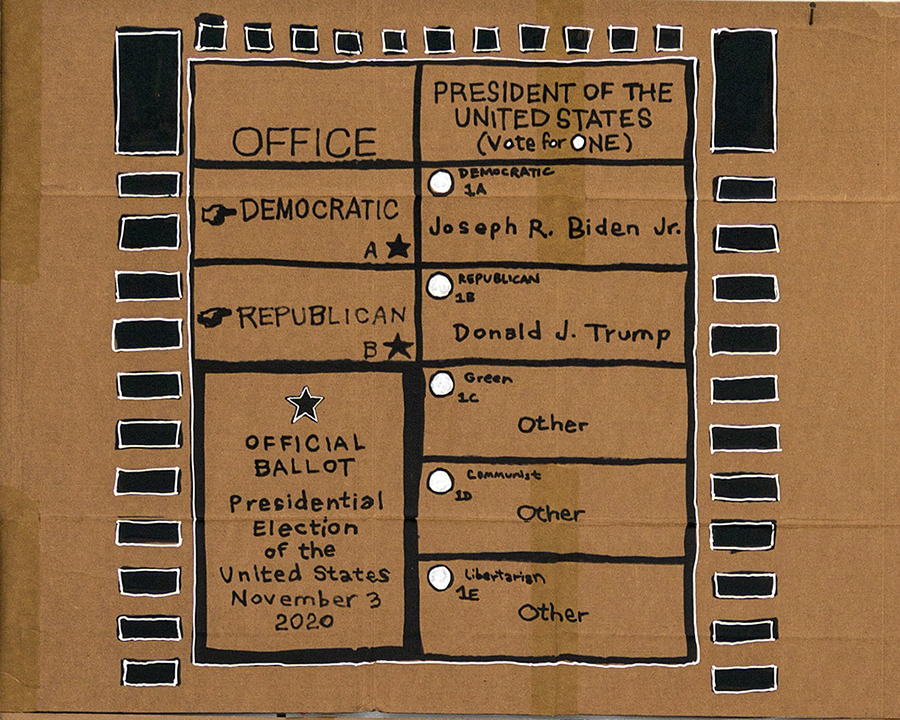 OFFICE
PRESIDENT OF THE
UNITED STATES
(Vote for ONE)
DEMOCRATIC
A
DEMOCRATIC
1A
Joseph R. Biden Jr.
REPUBLICAN
B
REPUBLICAN
1B
Donald J. Trump
OFFICIAL
BALLOT
Presidential
Election
of the
United States
November 3
2020
Green
1C
Other
Communist
1D
Other
Libertarian
1E
Other